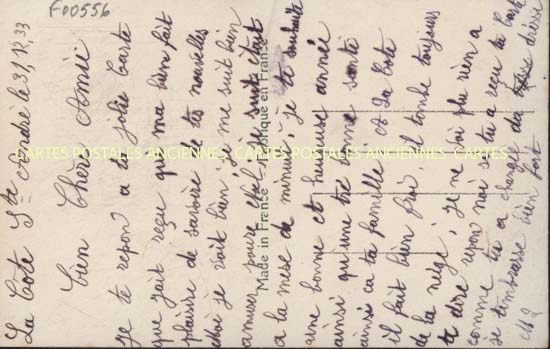 F00556
La Cote St André le 31, 12, 33
bien Chère Amie
je te repon a ta jolie Carte
que jait reçu qui ma bien fait
plaisire de savoire de tes nouvelles
choi je vait bien, je me suit bien
amuser poure
a la mese de minuit, je te souhaite
une bonne et heureuse année
ainsi qu'une tré santé
ainsi ca ta famille A La Cote
il fait bien froi, il tombe toujours
de la neige, je ne voi plu rien a
te dire repon moi si tu a reçu ta Carte
comme tu a changé du dresse
je t'embrasse bien fort
Made in France - Fabriqué en France
CARTES POSTALES ANCIENNES CARTES POSTALES ANCIENNES CARTES POSTALES ANCIENNES